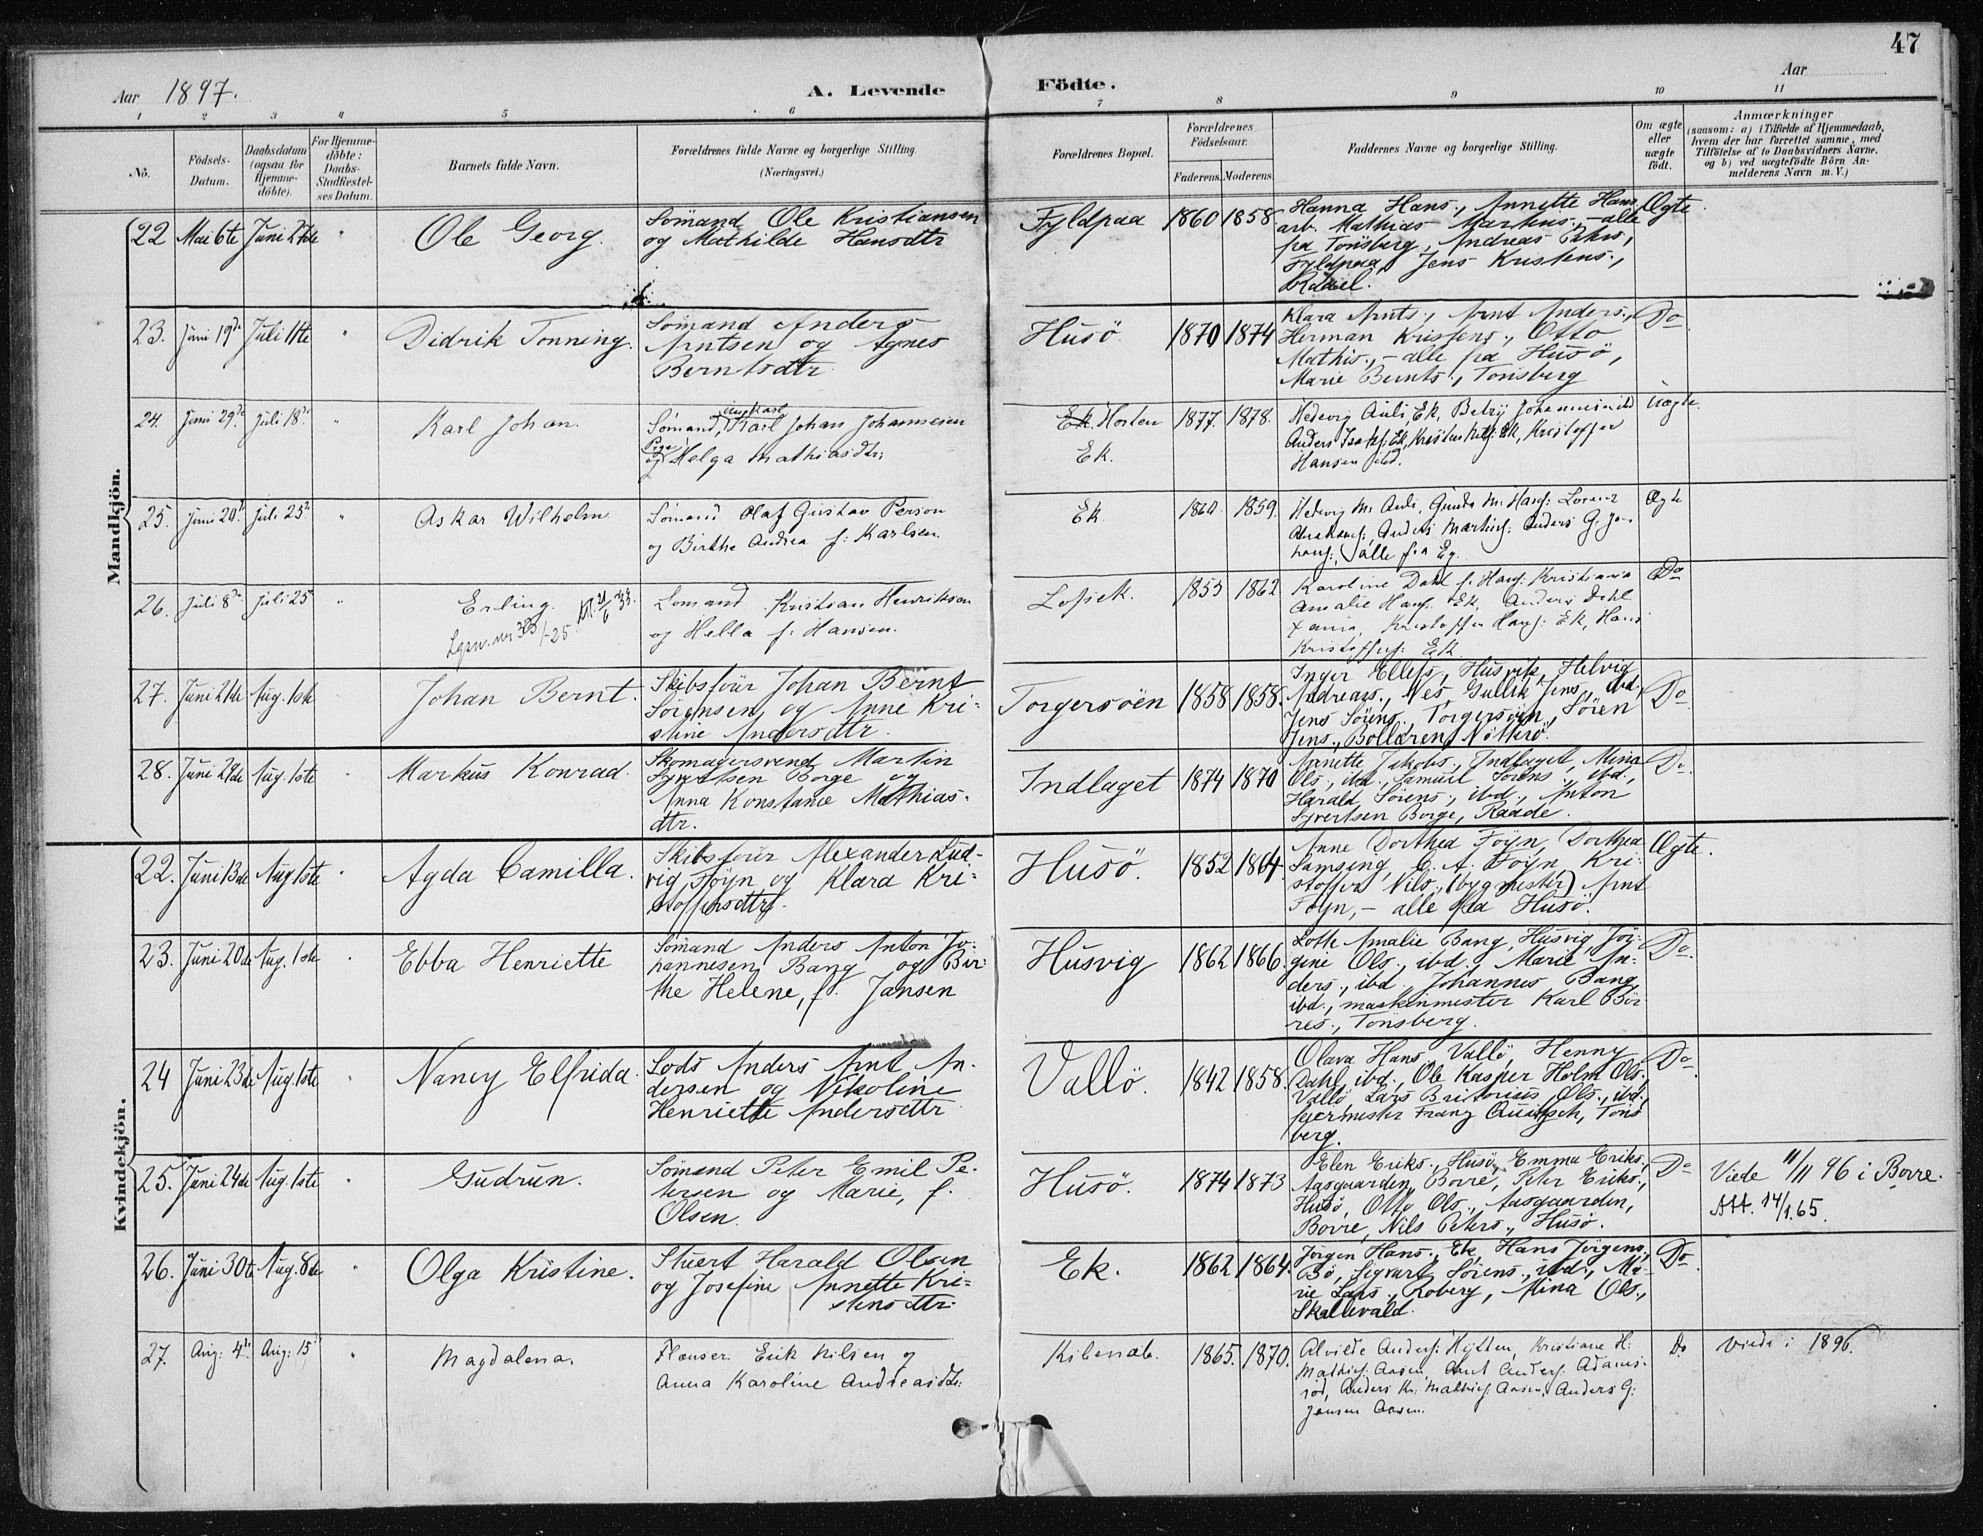 47
Aar 1897.
A. Levende Födte.
Aar
1 2 3 4 5 6 7 8 9 10 11
No.
Födsels-Datum.
Daabsdatum (ogsaa for Hjemmedöbte).
For Hjemmedöbte: Daabs-Stadfæstelses Datum.
Barnets fulde Navn.
Forældrenes fulde Navne og borgerlige Stilling. (Næringsvei.)
Forældrenes Bopæl.
Forældrenes Födselsaar.
Faderens. Moderens.
Faddernes Navne og borgerlige Stilling.
Om ægte eller uægte födt.
Anmærkninger
(saasom: a) i Tilfælde af Hjemmedaab,
hvem der har forrettet samme, med
Tilföielse af to Daabsvidners Navne,
og b) ved uægtefödte Börn Anmelderens Navn m. V.)
Mandkjön.
22 Mai 6te Juni 27de Ole Georg.
Sömand Ole Kristiansen
og Mathilde Hansdtr
Fyldpaa 1860 1858.
Hanna Hans., Annette Hans
arb. Mathias Martins., – alle
på Tönsberg, Andreas Peters.,
Fyldpaa, Jens Kristens.,
Ægte.
23. Juni 19de Juli 11te " Didrik Tonning.
Sömand Anders
Arntsen og Agnes
Berntsdtr.
Husö 1870 1874
Klara Arnts., Arnt Anders.,
Herman Kristens., Otto
Mathis., – alle på Husö,
Marie Bernts., Tönsberg
Do
24. Juni 29de Juli 18de " Karl Johan.
Sömand, Karl Johan Johannesen
Pige
og Helga Mathiasdtr:
Ek. Horten
Ek.
1877. 1878.
Hedevig Auli, Ek,
Hansen ibd.
Uægte.
25. Juni 20de Juli 25de " Oskar Wilhelm
Sömand Olaf Gustav Person
og Birthe Andrea f: Karlsen.
Ek 1860. 1859.
alle fra Eg.
Ægte
26. Juli 8de Juli 25de " Erling.
Lomand Kristian Henriksen
og Hella f: Hansen.
1855 1862
Karoline Dahl f. Hans: Kristiania
Amalie Hans: Ek, Anders Dahl
Xania, Kristoffer Hans: Ek, Hans
Kristoffers: Ek
Do
27. Juni 21de Aug. 1ste Johan Bernt.
Skibsförer Johan Bernt
Sörensen og Anne Kri-
stine Andersdtr.
Torgersöen 1858 1858.
Inger Ellefs., Husvik, Helvig
Andreas., Nes Gullik Jens., ibd.,
Jens Sörens., Torgersöen, Sören
Jens., Bolleren, Nötterö.
Do
28. Juni 21de Aug. 1ste " Markus Konrad.
Skomagersvend Martin
Syvertsen Borge og
Anna Konstance Mathias-
dtr.
Indlaget 1874 1870
Annette Jakobs., Indlaget, Mina
Ols., ibd., Samuel Sörens., ibd.,
Harald Sörens., ibd., Anton
Syvertsen Borge, Raade.
Do.
Kvindekjön.
22. Juni 13de Aug 1ste " Agda Camilla.
Skibsförer Alexander Lud-
vig Föyn og Klara Kri-
stoffersdtr.
Husö. 1852 1864
Anne Dorthea Föyn, Dorthea
Samsing, C. A. Föyn, Kri-
stoffer Nils., (bygmester) Arnt
Föyn, – alle på Husö.
Ægte.
23. Juni 20de Aug. 1ste " Ebba Henriette
Sömand Anders Anton Jo-
hannesen Bang og Bir-
the Helene, f. Jansen
Husvig 1862 1866.
Lotte Amalie Bang, Husvig, Jör-
gine Ols., ibd. Marie An-
ders., ibd., Johannes Bang,
ibd., maskinmester Karl Bör-
res., Tönsberg.
Do.
24 Juni 23de Aug. 1ste " Nancy Elfrida.
Lods Anders Arnt An-
dersen og Nikoline
Henriette Andersdtr
Vallö. 1842 1858.
Olava Hans. Vallö, Henny
Dahl, ibd., Ole Kasper Holm Ols.
Vallö, Lars Britonius Ols., ibd.,
Töns-
berg.
Do.
25. Juni 24de Aug. 1ste " Gudrun.
Sömand Peter Emil Pe-
tersen og Marie, f.
Olsen.
Husö. 1874 1873
Elen Eriks., Husö, Emma Eriks.,
Aasgaarden, Borre, Peter Eriks.,
Husö, Otto Ols., Aasgaarden,
Borre, Nils Peters., Husö.
Do
Viede 11/11 96 i Borre.
Att. 14/1.65.
26. Juni 30te Aug. 8de " Olga Kristine.
Stuert Harald Olsen
og Josefine Annette Kri-
stensdtr.
Ek. 1862 1864.
Jörgen Hans., Ek, Hans Jörgens.,
Bö, Sigvart Sörens., ibd., Ma-
rie Lars., Roberg, Mina Ols.,
Skallevald.
Do
27. Aug: 4de Aug: 15 " Magdalena.
Flenser Erik Nilsen og
Anna Karoline Andreasdtr:
1865. 1870.
Alvilde Anders: Kristiane H:
Mathis: Aasen, Arnt Anders: Adams-
röd, Anders Kr: Mathis: Aasen, Anders G:
Jensen Aasen.
Do
Viede i 1896.